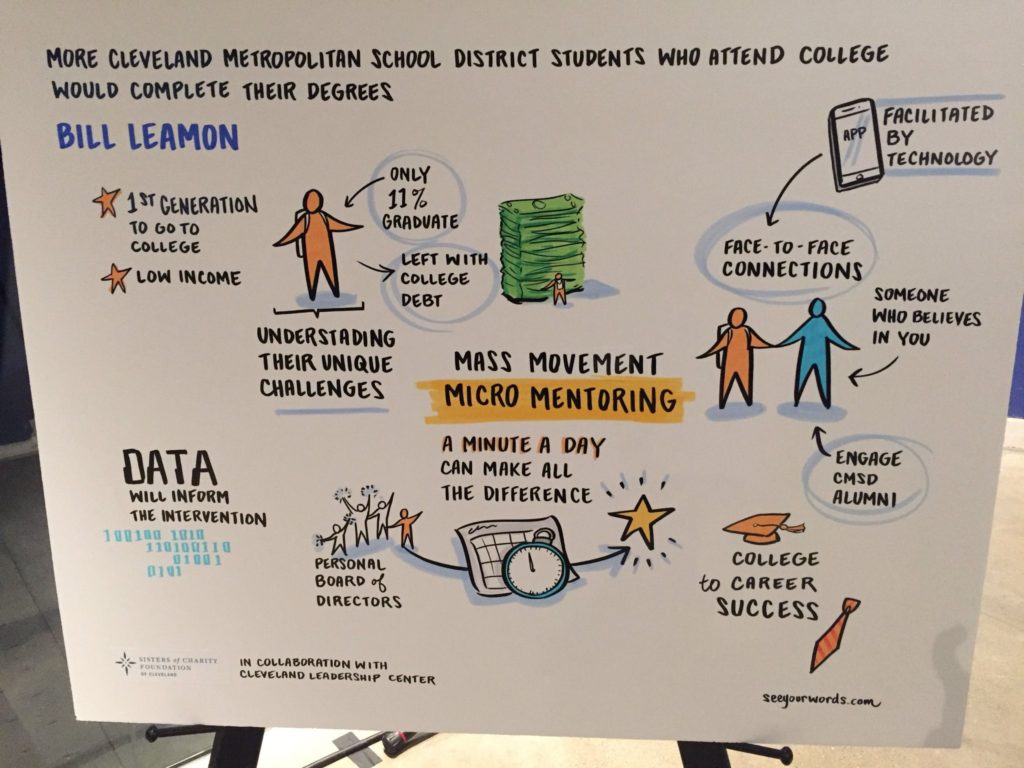 MORE CLEVELAND METROPOLITAN SCHOOL DISTRICT STUDENTS WHO ATTEND COLLEGE
WOULD COMPLETE THEIR DEGREES
BILL LEAMON
1ST GENERATION
TO GO TO
COLLEGE
LOW INCOME
ONLY
11%
GRADUATE
LEFT WITH
COLLEGE
DEBT
UNDERSTADING
THEIR UNIQUE
CHALLENGES
APP
FACILITATED
BY
TECHNOLOGY
FACE-TO-FACE
CONNECTIONS
SOMEONE
WHO BELIEVES
IN YOU
ENGAGE
CMSD
ALUMNI
MASS MOVEMENT
MICRO MENTORING
A MINUTE A DAY
CAN MAKE ALL
THE DIFFERENCE
DATA
WILL INFORM
THE INTERVENTION
100100 1010
110100110
01001
0101
PERSONAL
BOARD of
DIRECTORS
COLLEGE
to CAREER
SUCCESS
SISTERS of CHARITY
FOUNDATION
OF CLEVELAND
IN COLLABORATION WITH
CLEVELAND LEADERSHIP CENTER
seeyourwords.com